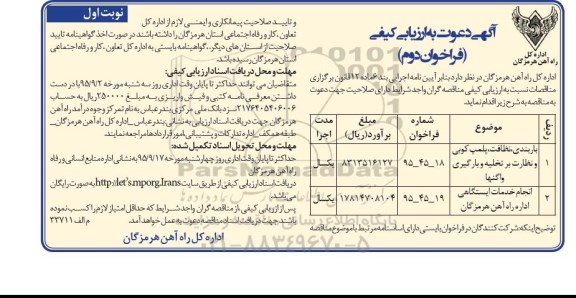 نوبت اول
آگهی دعوت به ارزیابی کیفی
(فراخوان دوم)
اداره کل
راه آهن هرمزگان
اداره کل راه آهن هرمزگان در نظر دارد بنابر آیین نامه اجرایی بند ج ماده ۱۲ قانون برگزاری
مناقصات نسبت به ارزیابی کیفی مناقصه گران واجد شرایط دارای صلاحیت جهت دعوت
به مناقصه به شرح زیر اقدام نماید.
ردیف موضوع شماره فراخوان مبلغ برآورد(ریال) مدت اجرا
۱ باربندی، نظافت، پلمپ کوبی و نظارت بر تخلیه و بارگیری واگنها ۱۸_۴۵_۹۵ ۸۳۱۳۵۱۶۱۲۷ یکسال
۲ انجام خدمات ایستگاهی اداره راه آهن هرمزگان ۱۹_۴۵_۹۵ ۱۷۸۱۴۷۰۸۱۰۴ یکسال
توضیح اینکه: شرکت کنندگان در فراخوان بایستی دارای اساسنامه مرتبط با موضوع مناقصه
و تایید صلاحیت پیمانکاری و ایمنی لازم از اداره کل
تعاون، کار و رفاه اجتماعی استان هرمزگان را داشته باشند در صورت اخذ گواهینامه تایید
صلاحیت از استان های دیگر، گواهینامه بایستی به تایید اداره کل تعاون، کار و رفاه اجتماعی
استان هرمزگان رسیده باشد.
مهلت و محل دریافت اسناد ارزیابی کیفی:
متقاضیان می توانند حداکثر تا پایان وقت اداری روز سه شنبه مورخه ۹۵/۹/۲ با در دست
داشتن معرفی نامه کتبی و فیش واریزی به مبلغ ۲۵۰۰۰۰ ریال به حساب
۲۱۷۶۴۰۵۲۰۶۰۰۶ نزد بانک ملی مرکزی بندرعباس به نام تمرکز وجوه درآمد راه آهن
هرمزگان جهت دریافت اسناد ارزیابی به نشانی: بندرعباس_اداره کل راه آهن هرمزگان_
طبقه همکف_اداره تدارکات و پشتیبانی_امور قراردادها مراجعه نمایند.
مهلت و محل تحویل اسناد تکمیل شده:
حداکثر تا پایان وقت اداری روز چهارشنبه مورخه ۹۵/۹/۱۷ به نشانی اداره منابع انسانی و رفاه
راه آهن هرمزگان
دریافت اسناد ارزیابی کیفی از طریق سایت http://iets.mporg.Ir به صورت رایگان
می باشد.
پس از ارزیابی کیفی، از مناقصه گران واجد شرایط که حداقل امتیاز لازم را کسب نموده
باشند جهت دریافت اسناد مناقصه دعوت به عمل خواهد آمد. م الف ۳۳۷۱۱
اداره کل راه آهن هرمزگان
ParsNamadData
۰۲۱-۸۸۳۴۹۶۷۰-۵